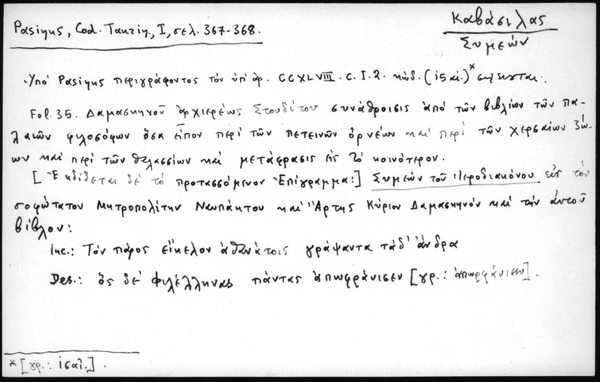 Pasinus, Cod. Taurin., I, σελ. 367-368.
Καβάσιλας
Συμεών
Ὑπὸ Pasinus περιγράφοντος τὸν ὑπ' ἀρ. CCXLVIII. C. I. 2. κώδ. (ις αἰ.)* σημειοῦται:
Fol. 35. Δαμασκηνοῦ ἀρχιερέως Στουδίτου συνάθροισις ἀπὸ τῶν βιβλίων τῶν πα-
λαιῶν φιλοσόφων ὅσα εἶπον περὶ τῶν πετεινῶν ὀρνέων καὶ περὶ τῶν χερσαίων ζώ-
ων καὶ περὶ τῶν θαλασσίων καὶ μετάφρασις εἰς τὸ κοινότερον.
[Ἐκδίδεται δὲ τὸ προτασσόμενον Ἐπίγραμμα:] Συμεὼν τοῦ Ἱεροδιακόνου εἰς τὸν
σοφώτατον Μητροπολίτην Ναυπάκτου καὶ Ἄρτης Κύριον Δαμασκηνὸν καὶ τὴν αὐτοῦ
βίβλον:
Inc.: Τὸν πάρος εἴκελον ἀθανάτοις γράψαντα τάδ' ἄνδρα
Des.: ὃς δὲ φιλέλληνας πάντας ἀπωφράνισεν [γρ.: ἀπωρφάνισεν].
* [γρ.: ισαἰ.]